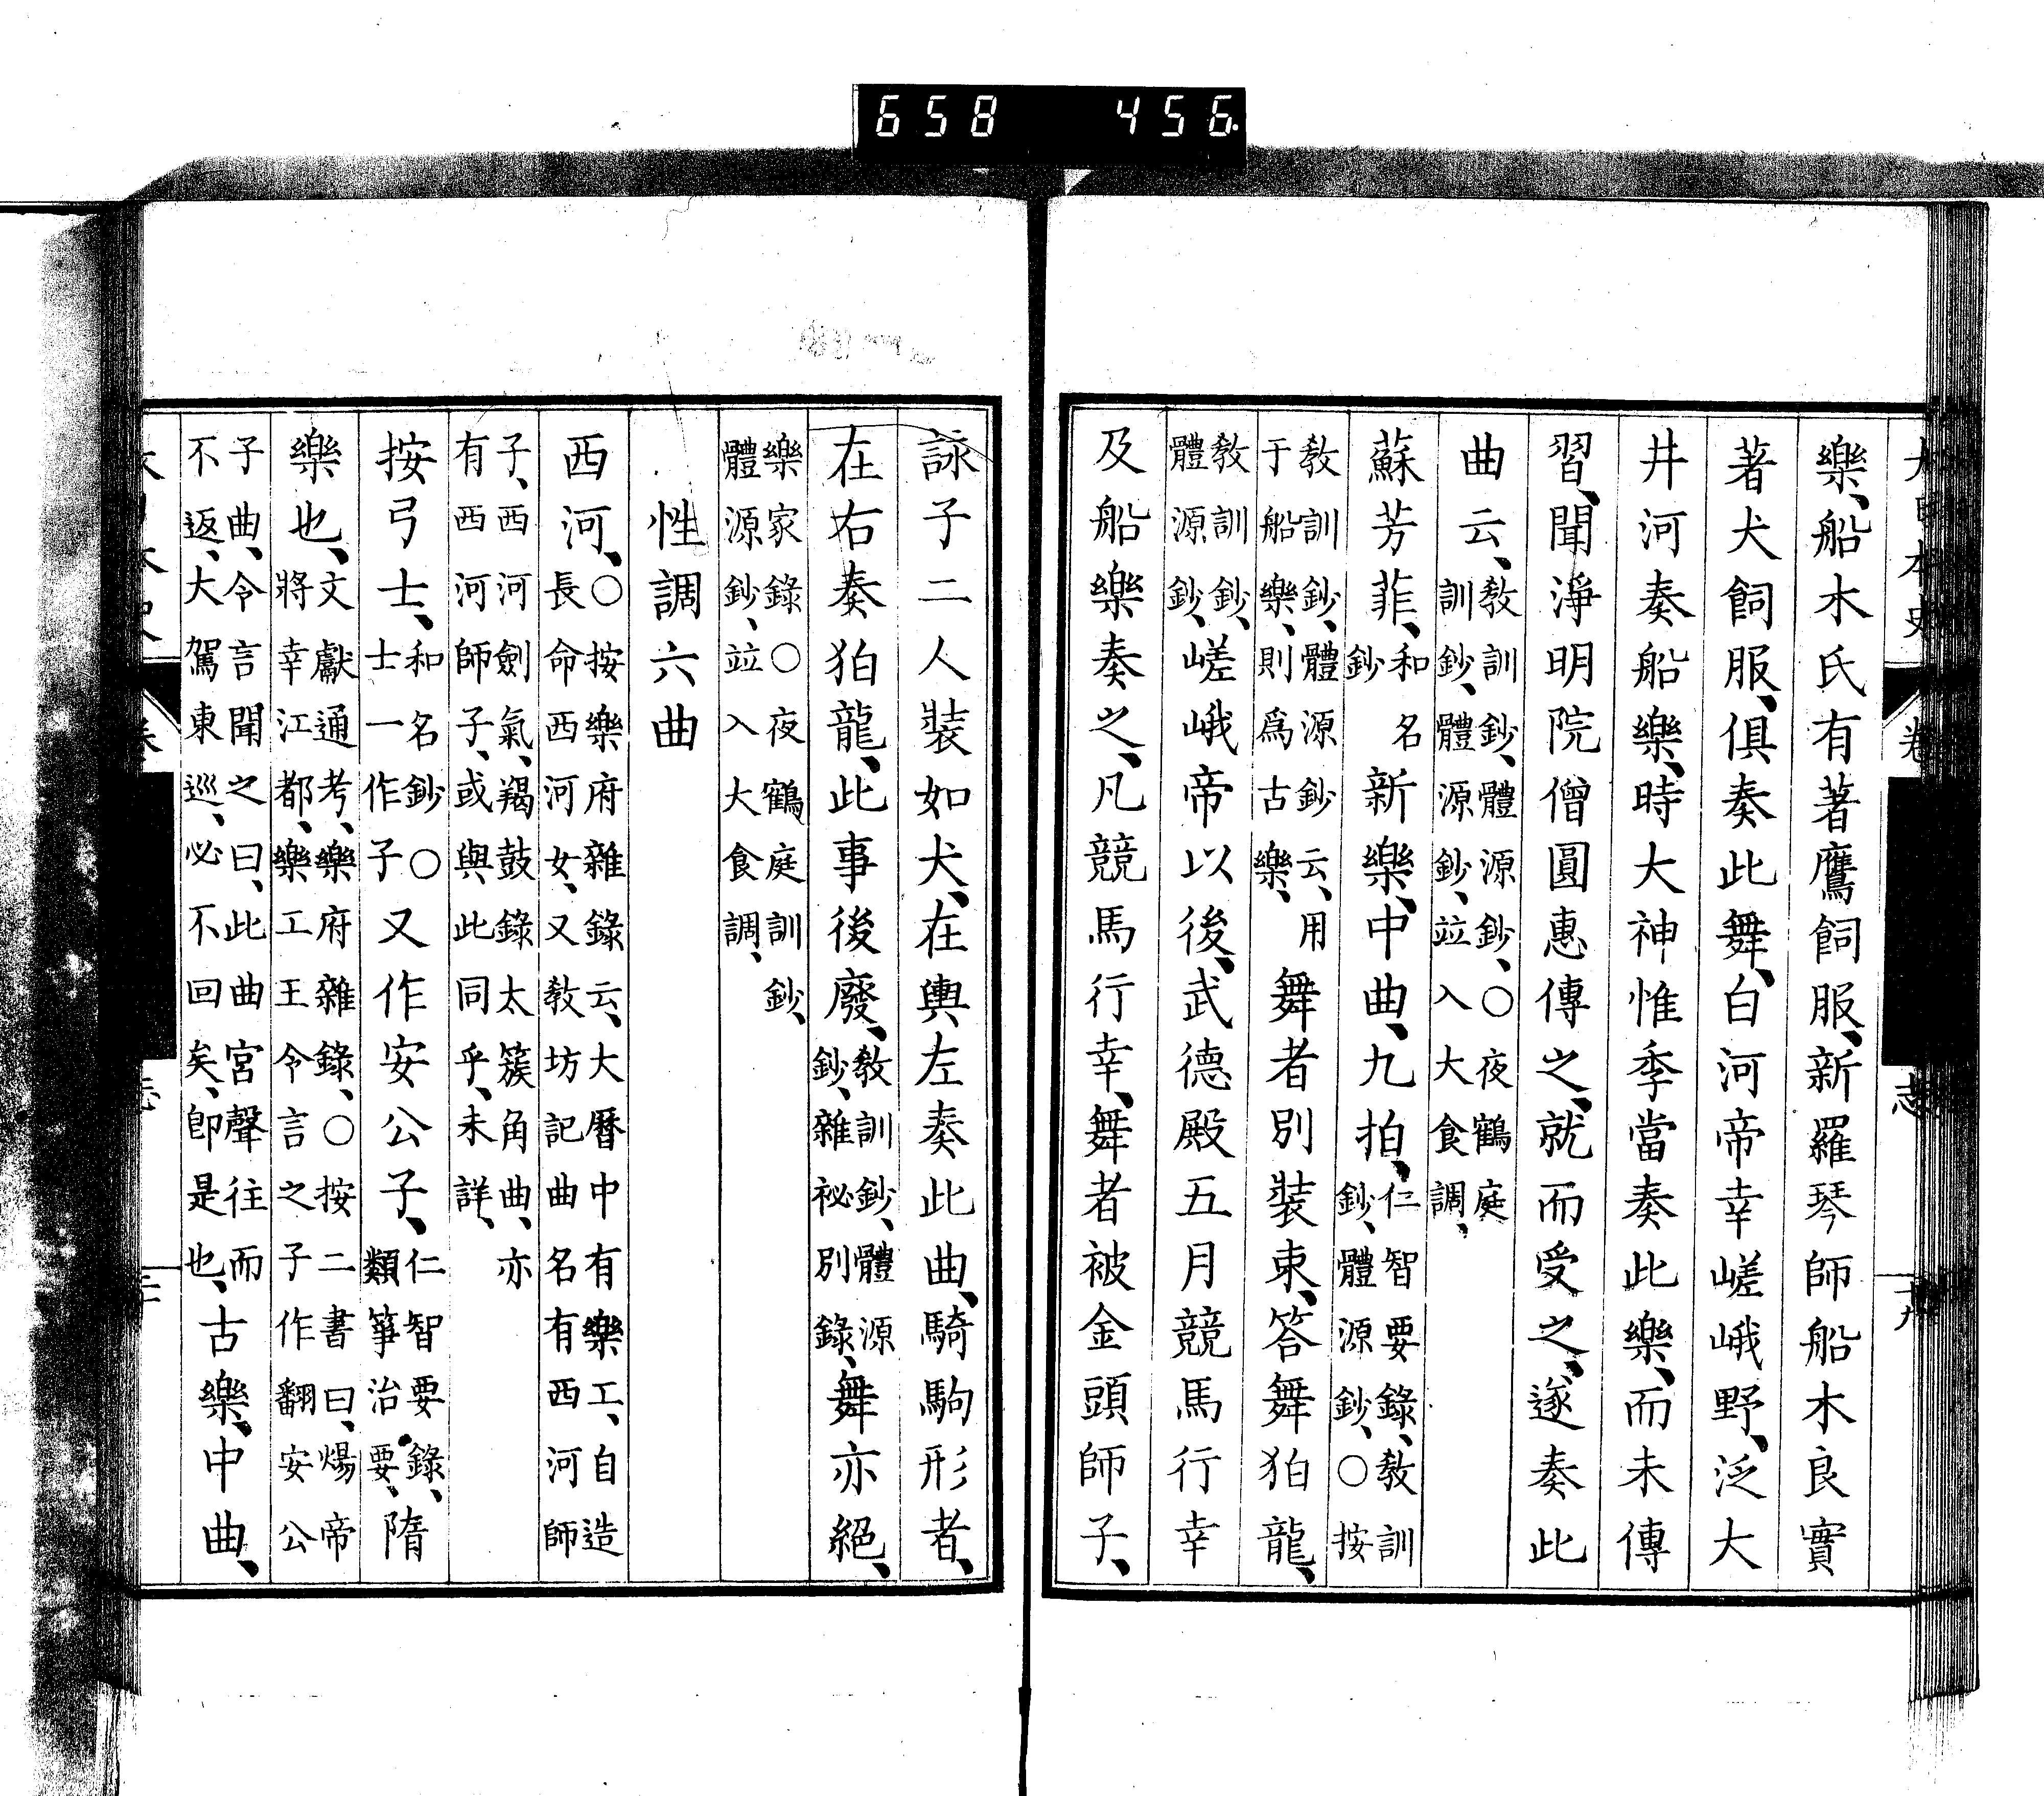 658 456.
大日本史 卷 志 十九
樂、船木氏有著鷹飼服、新羅琴師船木良實
著犬飼服、俱奏此舞、白河帝幸嵯峨野、泛大
井河奏船樂、時大神惟季當奏此樂、而未傳
習、聞淨明院僧圓惠傳之、就而受之、遂奏此
曲云、敎訓鈔、體源鈔、○夜鶴庭訓鈔、體源鈔、竝入大食調、
蘇芳菲、和名鈔新樂、中曲、九拍、仁智要錄、敎訓鈔、體源鈔、○按
敎訓鈔、體源鈔云、用于船樂、則爲古樂、舞者別裝束、答舞狛龍、
敎訓鈔、體源鈔、嵯峨帝以後、武德殿五月競馬行幸
及船樂奏之、凡競馬行幸、舞者被金頭師子、
詠子二人裝如犬、在輿左奏此曲、騎駒形者、
在右奏狛龍、此事後廢、敎訓鈔、體源鈔、雜祕別錄、舞亦絕、
樂家錄○夜鶴庭訓鈔、體源鈔、竝入大食調、
性調六曲
西河、○按樂府雜錄云、大曆中有樂工、自造長命西河女、又敎坊記曲名有西河師
子、西河劍氣、羯鼓錄太簇角曲、亦有西河師子、或與此同乎、未詳、
按弓士、和名鈔○士一作子又作安公子、仁智要錄、類箏治要、隋
樂也、文獻通考、樂府雜錄、○按二書曰、煬帝將幸江都、樂工王令言之子作翻安公
子曲、令言聞之曰、此曲宮聲往而不返、大駕東巡、必不回矣、卽是也、古樂、中曲、